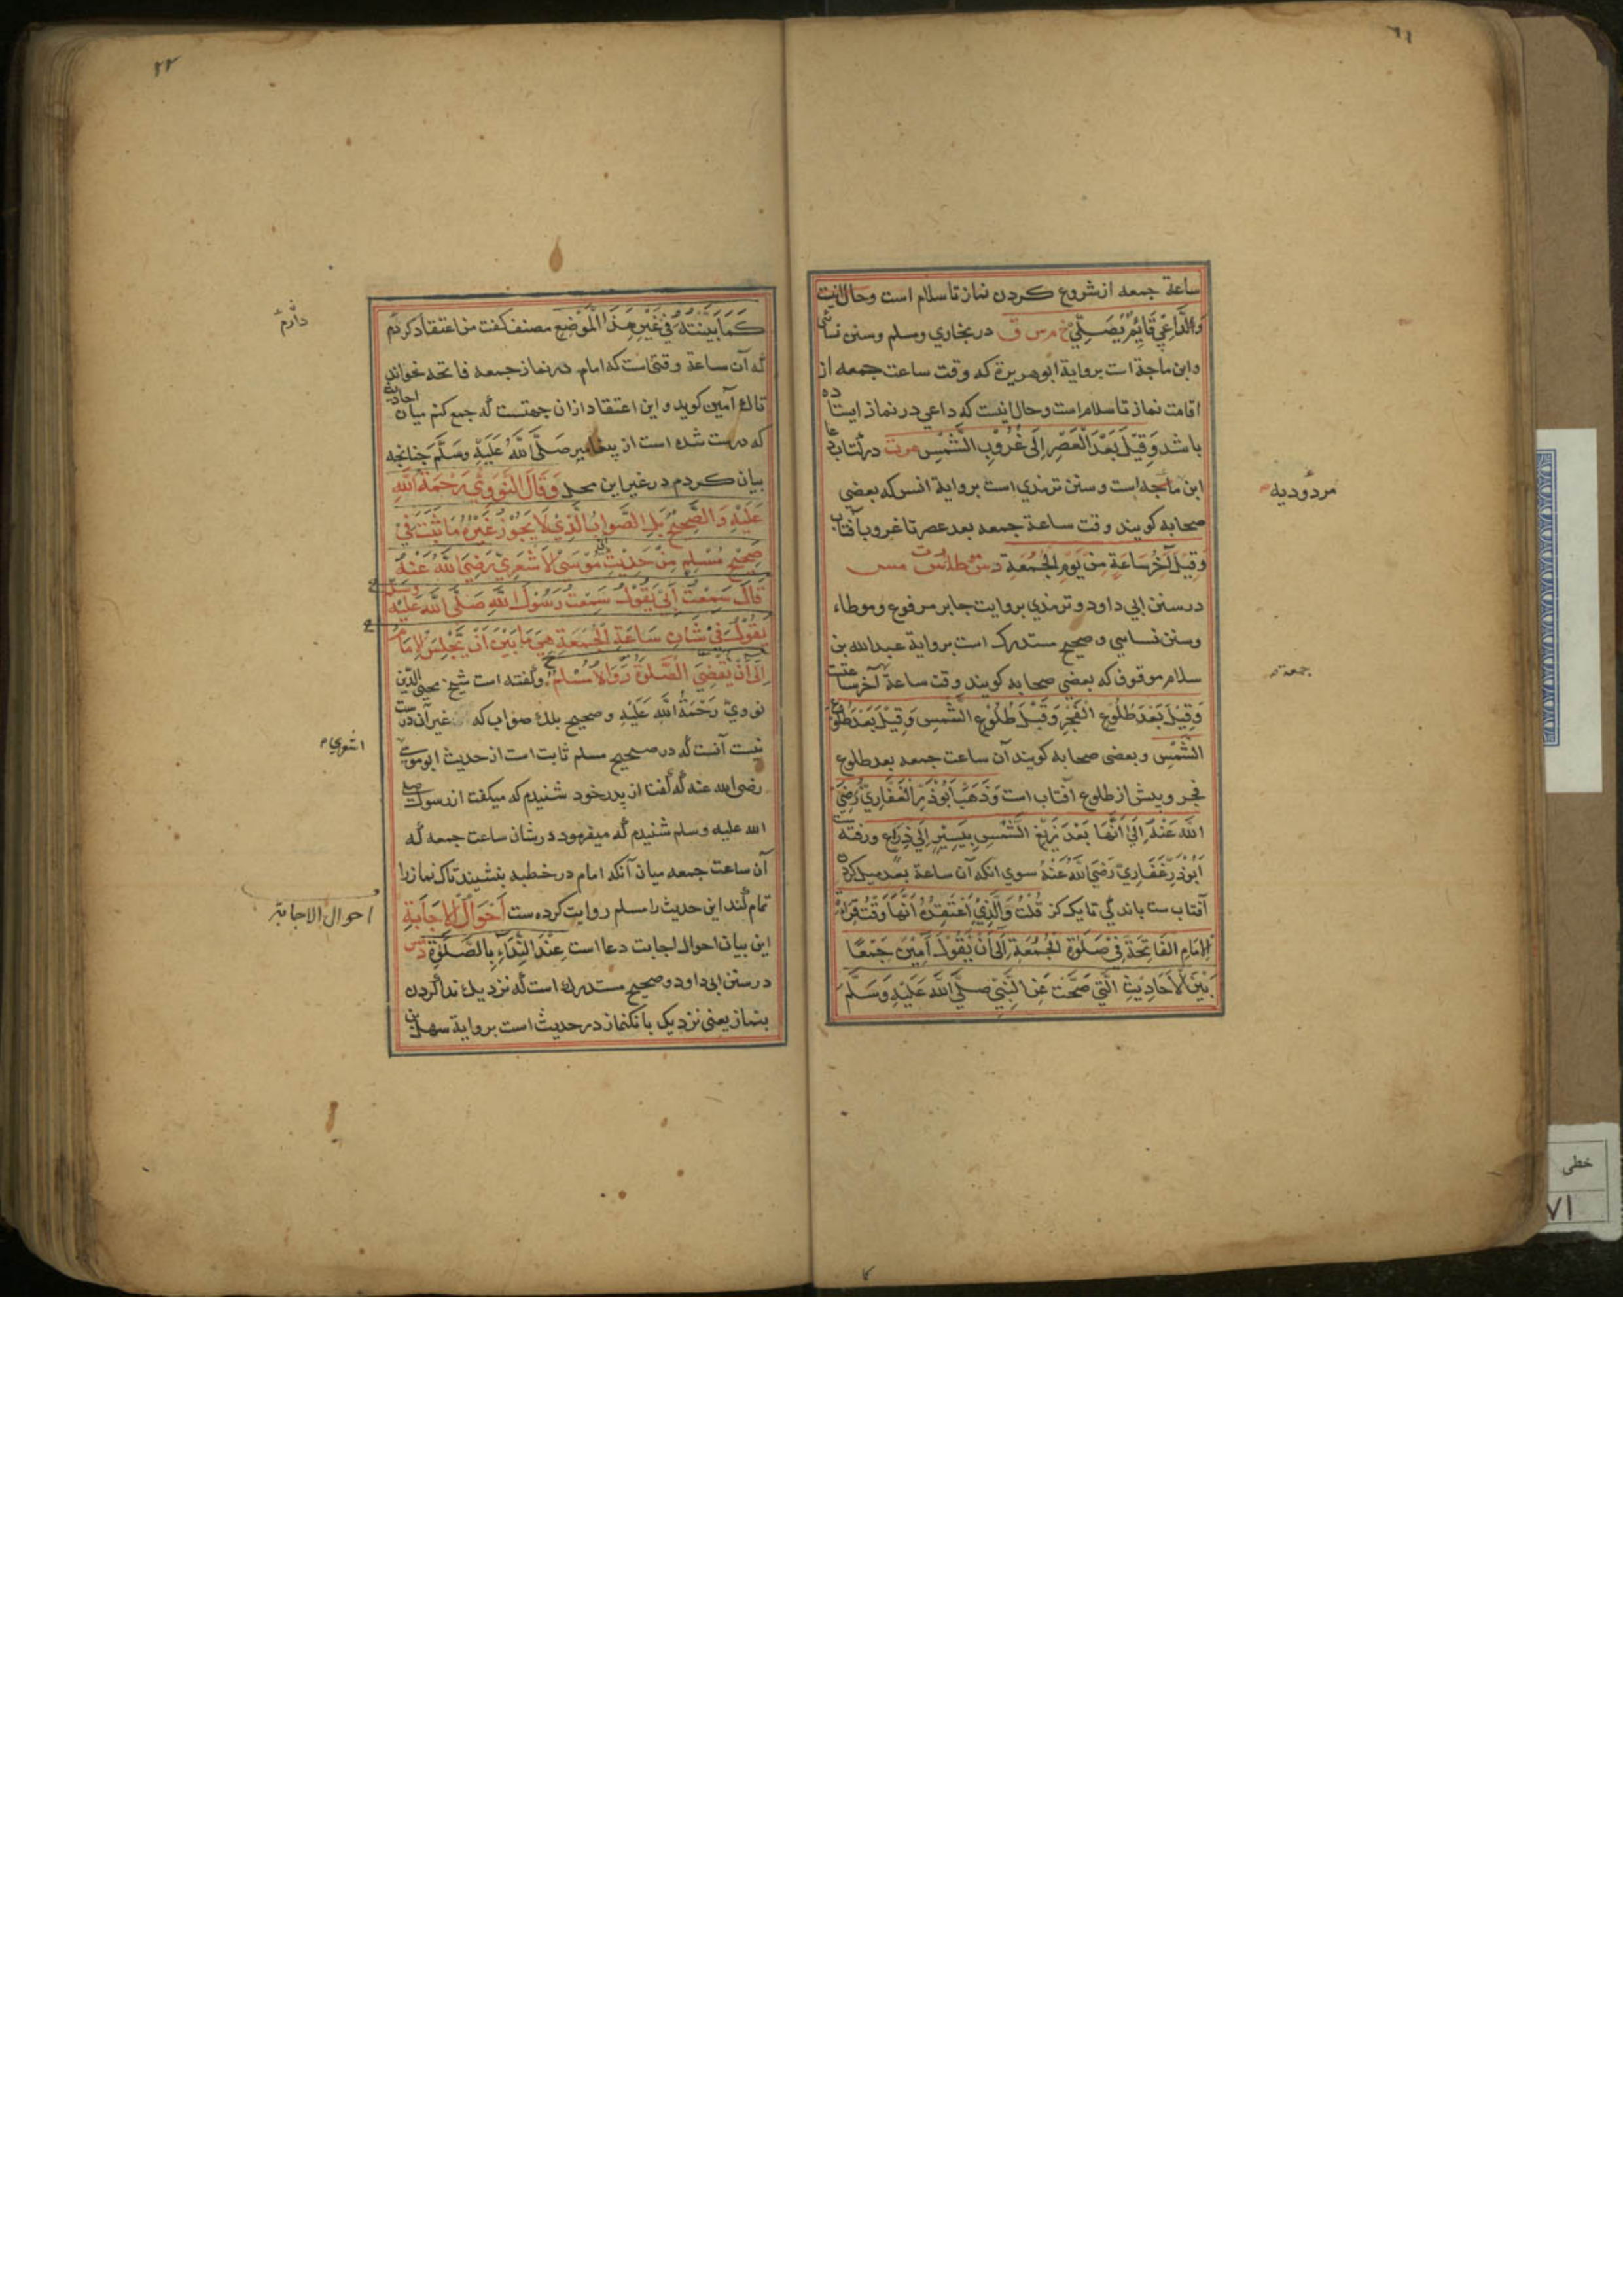 ساعة جمعه از شروع کردن نماز تا سلام است وحال انیت
وَالدَّاعِي قَائِمٌ يُصَلِّي خ م س ق در بخاري ومسلم وسنن نسائي
وابن ماجة است برواية ابو هريرة که وقت ساعت جمعه از
اقامت نماز تا سلام است وحال انیست که داعي در نماز ایستاده
باشد وَقِيْلَ بَعْدَ الْعَصْرِ اِلَى غُرُوْبِ الشَّمْسِ در کتاب
ابن ماجه است و سنن ترمذي است برواية انس که بعضي
صحابه کویند وقت ساعة جمعه بعد عصر تا غروب آفتاب
وَقِيْلَ آخِرُ سَاعَةٍ مِنْ يَوْمِ الْجُمُعَةِ
در سنن ابي داود و ترمذي بروایت جابر مرفوع و موطاء
وسنن نسايي و صحیح مستدرک است برواية عبد الله بن
سلام موقوف که بعضي صحابه کویند وقت ساعة آخر ساعتت
وَقِيْلَ بَعْدَ طُلُوْعِ الْفَجْرِ وَقَبْلَ طُلُوْعِ الشَّمْسِ وَقِيْلَ بَعْدَ طُلُوْعِ
الشَّمْسِ و بعضی صحابه کویند آن ساعت جمعه بعد طلوع
فجر وبیش از طلوع آفتاب است وَذَهَبَ اَبُوْ ذَرِّ الْغَفَّارِيْ رَضِيَ
اللَّهُ عَنْهُ اِلَى اَنَّهَا بَعْدَ زَيْغِ الشَّمْسِ بِيَسِيْرٍ اِلَى ذِرَاعٍ ورفته
اَبُوْ ذَرِّ غَفَارِيْ رَضِيَ اللَّهُ عَنْهُ سوي انکه آن ساعة بعد میل کردن
آفتاب ست باندکي تا یک کز قُلْتُ وَالَّذِيْ اَعْتَقِدُهُ اَنَّهَا وَقْتُ قِرَاءَةِ
الْاِمَامِ الْفَاتِحَةَ فِيْ صَلٰوةِ الْجُمُعَةِ اِلَى اَنْ يَقُوْلَ آمِيْنَ جَمْعًا
بَيْنَ الْاَحَادِيْثِ الَّتِيْ صَحَّتْ عَنِ النَّبِيِّ صَلَّى اللَّهُ عَلَيْهِ وَسَلَّمَ
جمعة
۲۲
كَمَا بَيَّنْتُهُ فِيْ غَيْرِ هٰذَا الْمَوْضِعِ مصنف کفت من اعتقاد کردم
که آن ساعة وقتی است که امام در نماز جمعه فاتحه بخواند
تا آمین کوید و این اعتقاد ازان جهتست که جمع کنم میان احادیث
که درست شده است از پیغامبر صَلَّى اللَّهُ عَلَيْهِ وَسَلَّمَ چنانچه
بیان کردم در غیر این محل وَقَالَ النَّوَوِيُّ رَحْمَةُ اللَّهِ
عَلَيْهِ وَالصَّحِيْحُ بَلِ الصَّوَابُ الَّذِيْ لَا يَجُوْزُ غَيْرُهُ مَا ثَبَتَ فِيْ
صَحِيْحِ مُسْلِمٍ مِنْ حَدِيْثِ اَبِي مُوْسَى الْاَشْعَرِيْ رَضِيَ اللَّهُ عَنْهُ
قَالَ سَمِعْتُ اَبِي يَقُوْلُ سَمِعْتُ رَسُوْلَ اللَّهِ صَلَّى اللَّهُ عَلَيْهِ وَسَلَّمَ
يَقُوْلُ فِيْ شَانِ سَاعَةِ الْجُمُعَةِ هِيَ مَا بَيْنَ اَنْ يَجْلِسَ الْاِمَامُ
اِلَى اَنْ يَقْضِيَ الصَّلٰوةَ رَوَاهُ مُسْلِمٌ وکفته است شیخ محیي الدین
نوويْ رَحْمَةُ اللَّهِ عَلَيْهِ و صحیح بلکه صواب که غیر آن درست
نیست آنست که در صحیح مسلم ثابت است از حدیث ابو موسی
رضی الله عنه که کفت از پدر خود شنیدم که میکفت از رسول صلی
الله علیه وسلم شنیدم که میفرمود در شان ساعت جمعه که
آن ساعت جمعه میان آنکه امام در خطبه بنشیند تا که نماز را
تمام کند این حدیث را مسلم روایت کرده ست اَحْوَالُ الْاِجَابَةِ
این بیان احوال اجابت دعا است عِنْدَ النِّدَاءِ بِالصَّلٰوةِ
در سنن ابی داود و صحیح مستدرك است که نزدیك ندا کردن
بنماز یعنی نزدیک بانکنماز در حدیث است برواية سهل بن
دارم
اشعري
احوال الاجابة
خطی
۷۱